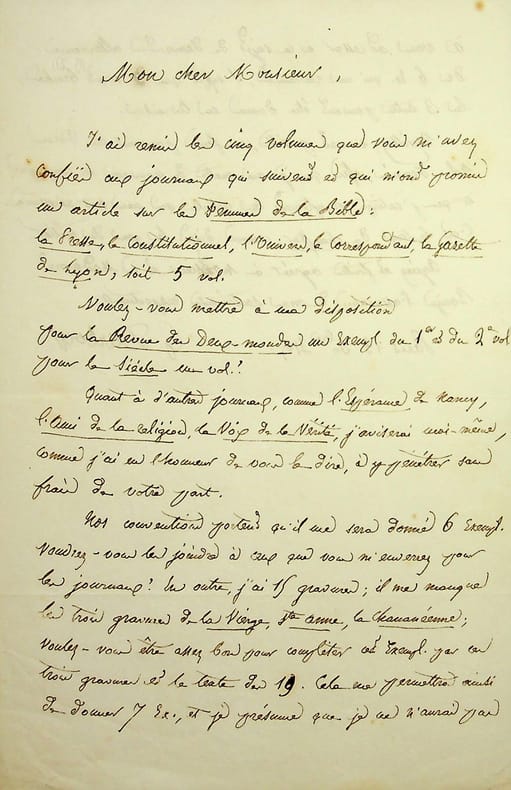 Mon cher Monsieur,
J'ai remis les cinq volumes que vous m'avez
confiés aux journaux qui suivent et qui m'ont promis
un article sur les Femmes de la Bible:
la Presse, le Constitutionnel, l'Univers, le Correspondant, la Gazette
de Lyon, soit 5 vol.
Voulez-vous mettre à ma disposition
pour la Revue des Deux-mondes un Exempl. du 1er et du 2e vol
pour le Siècle un vol.?
Quant à d'autres journaux, comme l'Espérance de Nancy,
l'Ami de la religion, la Voix de la Vérité, j'aviserai moi-même,
comme j'ai eu l'honneur de vous le dire, à y pénétrer sans
frais de votre part.
Nos conventions portent qu'il me sera donné 6 Exempl.
Voudrez-vous les joindre à ceux que vous m'enverrez pour
les journaux? En outre, j'ai 15 gravures; il me manque
les trois gravures de la Vierge, Ste anne, la Chananéenne;
Voulez-vous être assez bon pour compléter cet Exempl. par ces
trois gravures et le texte des 19. Cela me permettrait ainsi
de donner 7 Ex., et je présume que je ne n'aurai pas